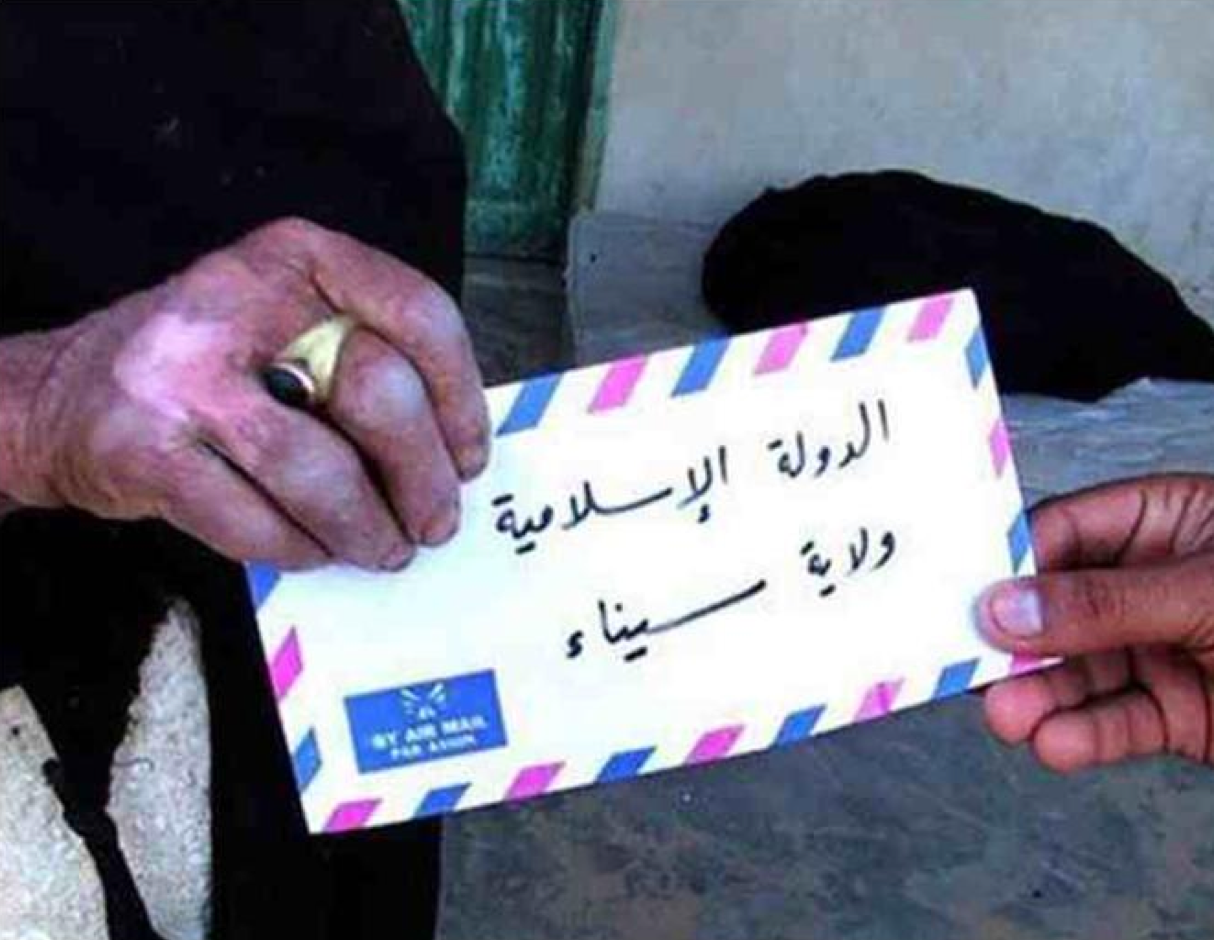 الدولة الإسلامية
ولاية سيناء
BY AIR MAIL
PAR AVION